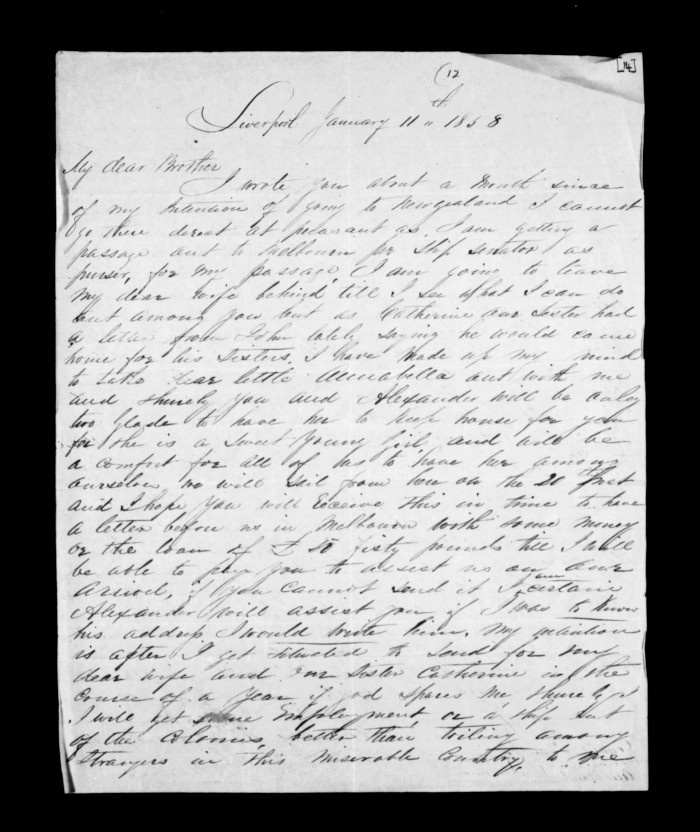 (12
[14]
Liverpool January 11th 1858
My dear Brother
I wrote you about a Month since
of my Intention of going to Newzealand I cannot
go there direct at pleasant as I am getting a
passage out to Melbourn per Ship Senator as
purser, for my passage, I am going to leave
my dear wife behind till I see what I can do
out among you but as Catherine our Sister had
a letter from John lately saying he would come
home for his Sisters. I have made up my mind
to take dear little Annabella out with me
and you and Alexander will be only
two glade to have her to keep house for you
for she is a Sweet young girl and will be
a comfort for all of us to have her among
ourselves, we will Sail from here on the 20th
and I hope you will receive this in time to have
a letter before us in Melbourn with some money
or the loan of £50 fifty pounds till I will
be able to pay you to assist us on our
arrival, if you cannot send it I am certain
Alexander will assist you if I was to know
his address I would write him. My intention
is after I get situated to send for my
dear wife and our Sister Catherine in the
course of a year if god spares me
I will get some Employment or a Ship out
of the Colonies better than toiling among
Strangers in this Miserable Country, to me